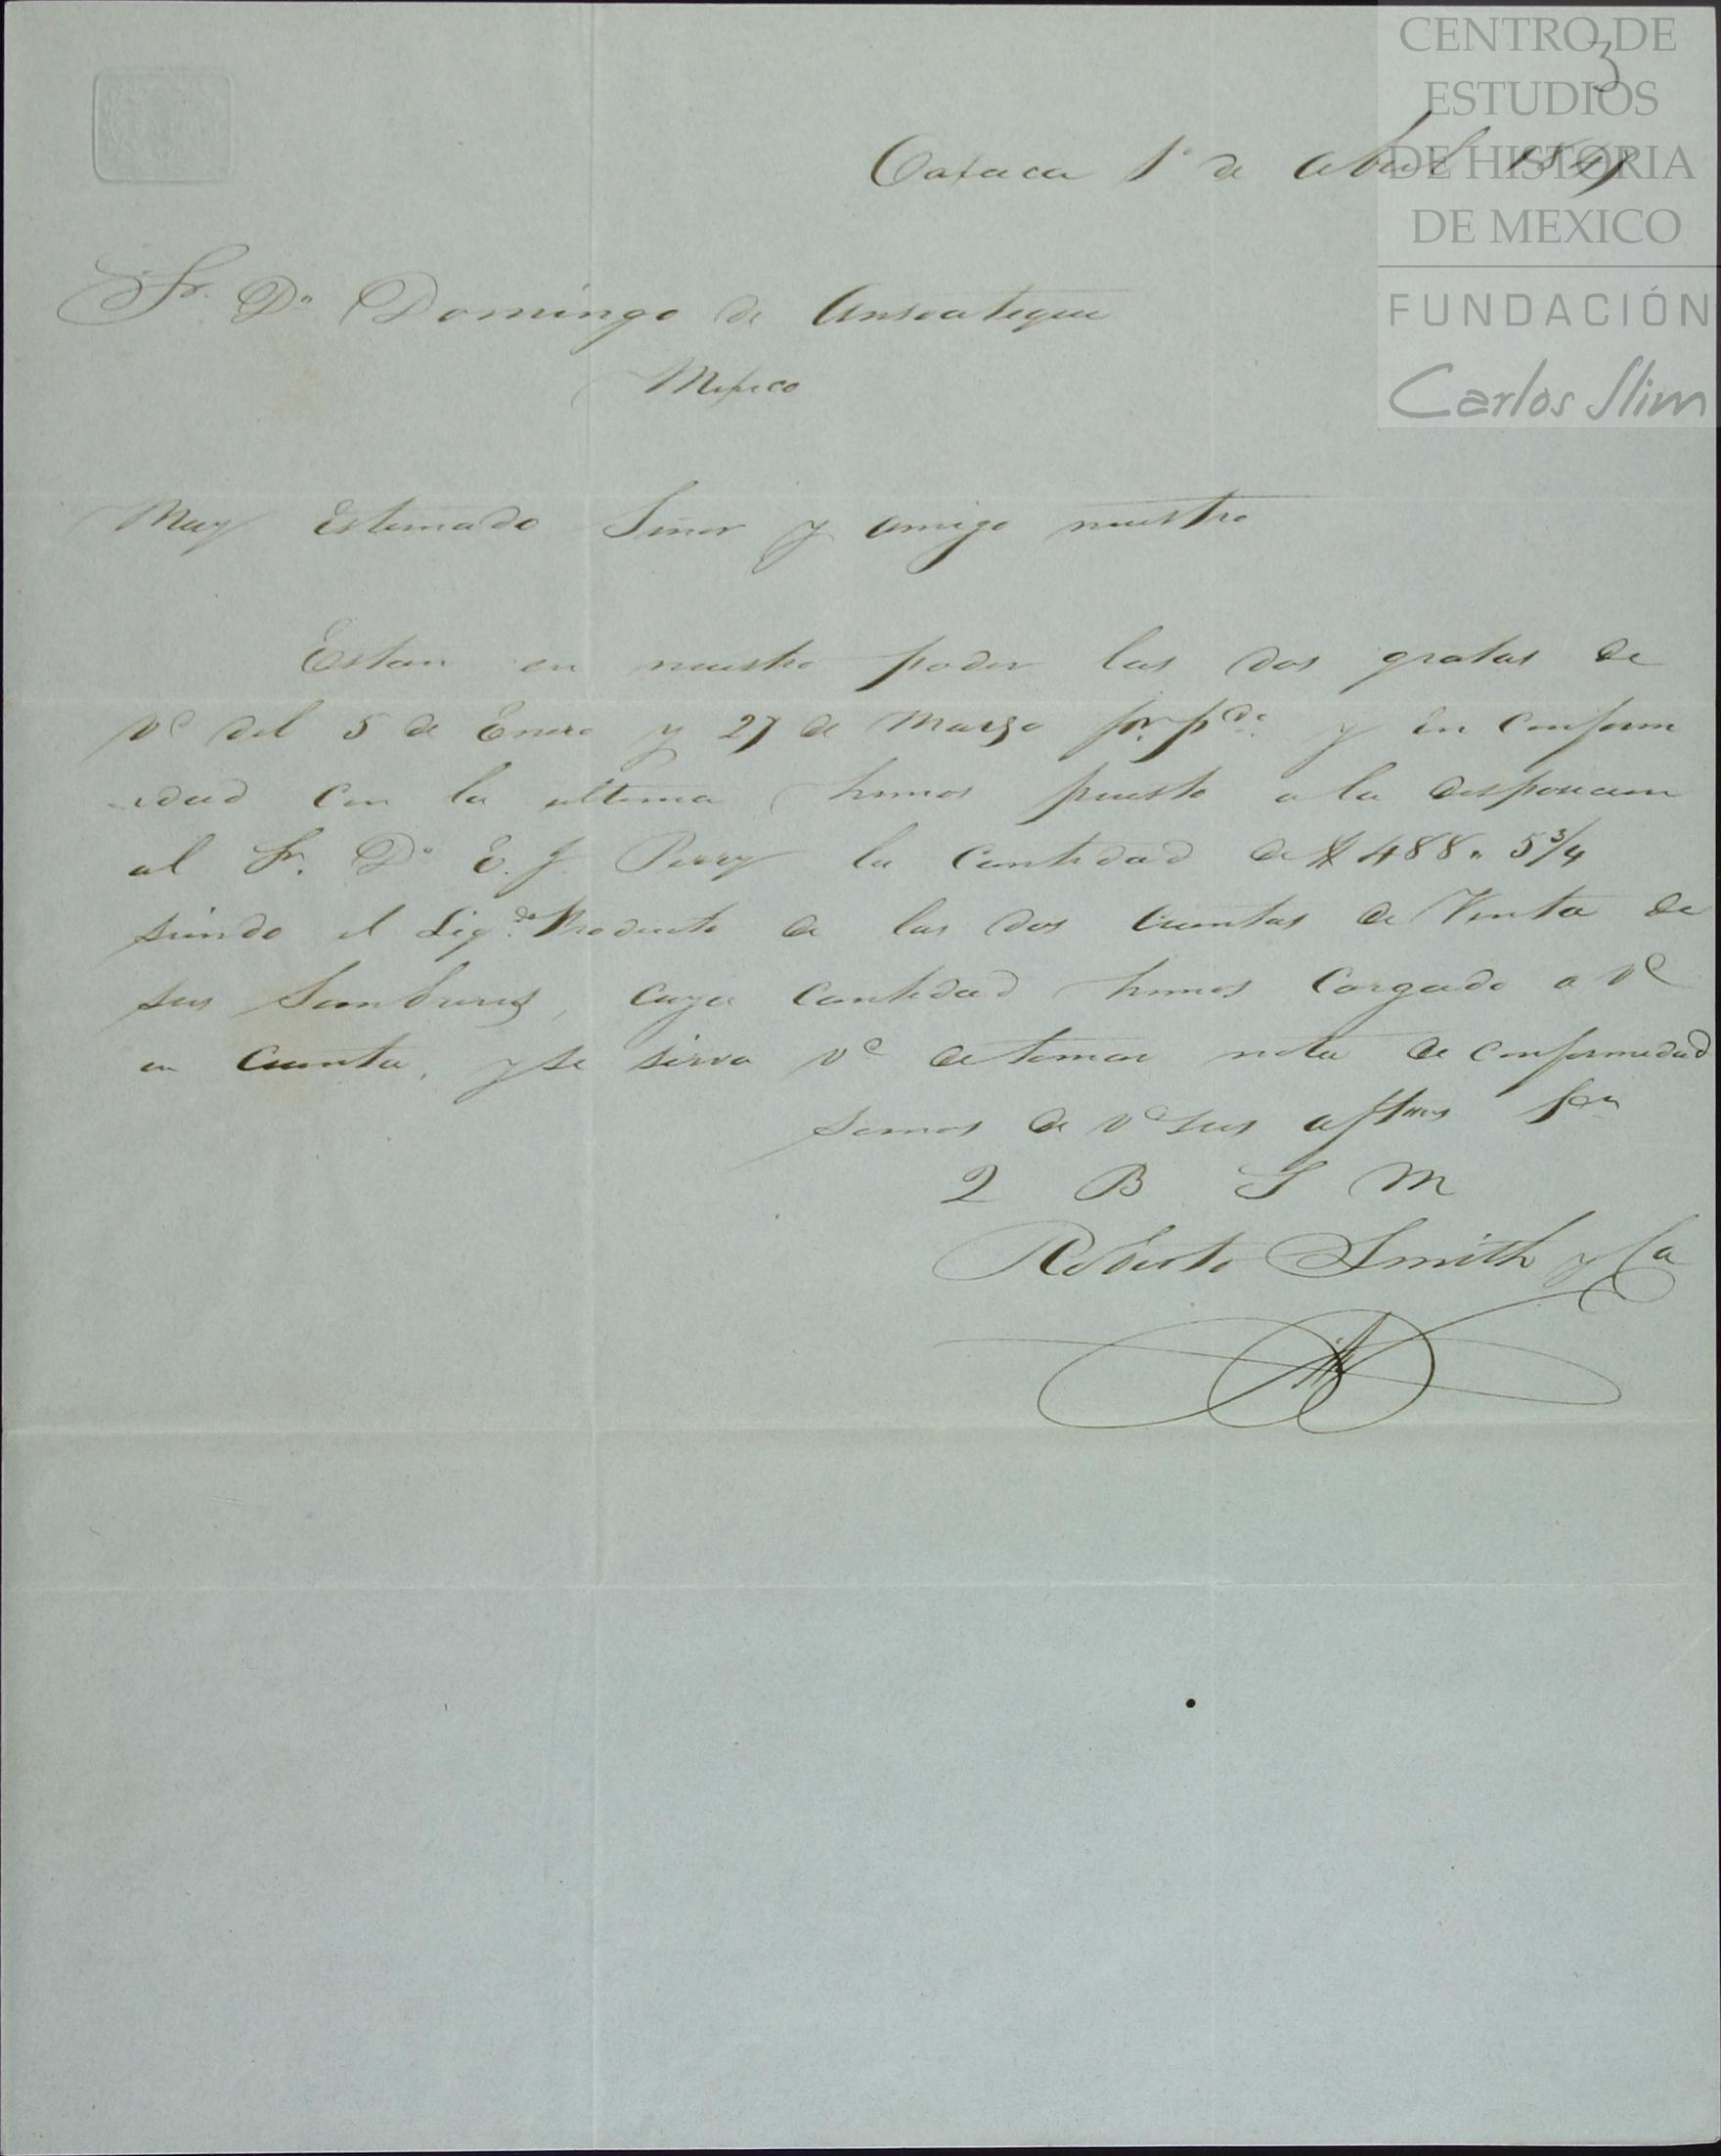 3
CENTRO DE
ESTUDIOS
DE HISTORIA
DE MEXICO
FUNDACIÓN
Carlos Slim
Oaxaca 1º de Abril
Sr. Dn Domingo de Ansoategui
Mexico
Muy Estimado Señor y amigo nuestro
Estan en nuestro poder las dos gratas de
Vd del 5 de Enero y 27 de Marzo pr. pdo. y en conform
-idad con la ultima hemos puesto a la disposicion
al Sr. Dn E. J. Perry la Cantidad de $ 488 " 5 3/4
siendo el Liqdo. Producto de las dos Cuentas de Venta de
sus Sombreros, cuya Cantidad hemos Cargado a Vd
en Cuenta, y se sirva Vd de tomar nota de conformedad
somos de Vd sus afftmos
2 B S M
Roberto Smith y Ca